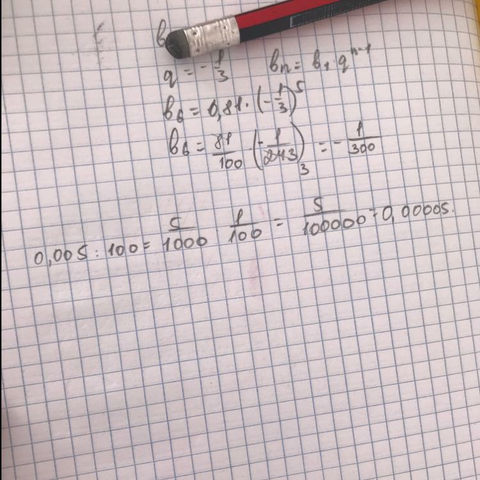 b
q = -1/3 bn = b1 · q^n-1
b6 = 0,81 · (-1/3)^5
b6 = 81/100 (-1/243)3 = -1/300
0,005 : 100 = 5/1000 1/100 = 5/100000 = 0,00005.